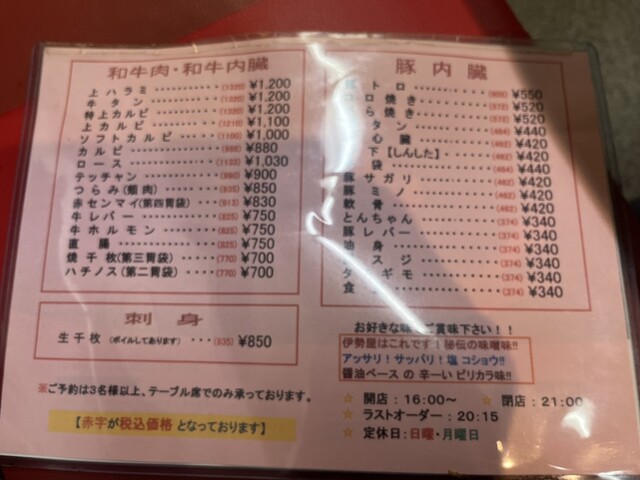 和牛肉・和牛内臓
上ハラミ ・・・・・・・・・・ (1320) ¥1,200
牛タン ・・・・・・・・・・ (1320) ¥1,200
特上カルビ ・・・・・・・・ (1320) ¥1,200
上カルビ ・・・・・・・・・ (1210) ¥1,100
ソフトカルビ ・・・・・・・ (1100) ¥1,000
カルビ ・・・・・・・・・・ ¥880
ロース ・・・・・・・・・・ (1133) ¥1,030
テッチャン ・・・・・・・・ (990) ¥900
つらみ(頬肉) ・・・・・・・ (935) ¥850
赤センマイ(第四胃袋) ・・・ (913) ¥830
牛レバー ・・・・・・・・・ (825) ¥750
牛ホルモン ・・・・・・・・ (825) ¥750
直腸 ・・・・・・・・・・・ (825) ¥750
焼千枚(第三胃袋) ・・・・・ (770) ¥700
ハチノス(第二胃袋) ・・・・ (770) ¥700
刺身
生千枚 (ボイルしてあります) ・・・ (935) ¥850
※ご予約は3名様以上、テーブル席でのみ承っております。
【赤字が税込価格 となっております】
豚内臓
トロ ・・・・・・・・・・ (605) ¥550
ロ焼き ・・・・・・・・・ (572) ¥520
ら焼き ・・・・・・・・・ (572) ¥520
タン ・・・・・・・・・・ (484) ¥440
心臓 ・・・・・・・・・・ (462) ¥420
下【しんした】 ・・・・・ (462) ¥420
袋 ・・・・・・・・・・・ (484) ¥440
豚サガリ ・・・・・・・・ (462) ¥420
豚ミノ ・・・・・・・・・ (462) ¥420
軟骨 ・・・・・・・・・・ (462) ¥420
とんちゃん ・・・・・・・ (374) ¥340
豚レバー ・・・・・・・・ (374) ¥340
油身 ・・・・・・・・・・ (374) ¥340
スジ ・・・・・・・・・・ (374) ¥340
タ ギモ ・・・・・・・・ (374) ¥340
食 ・・・・・・・・・・・ (374) ¥340
お好きな味 ご賞味下さい！！
伊勢屋はこれです！秘伝の味噌味!!
アッサリ！サッパリ！塩 コショウ!!
醤油ベース の 辛ーい ピリカラ味!!
☆ 開店：16:00～ ☆ 閉店：21:00
☆ ラストオーダー：20:15
☆ 定休日：日曜・月曜日